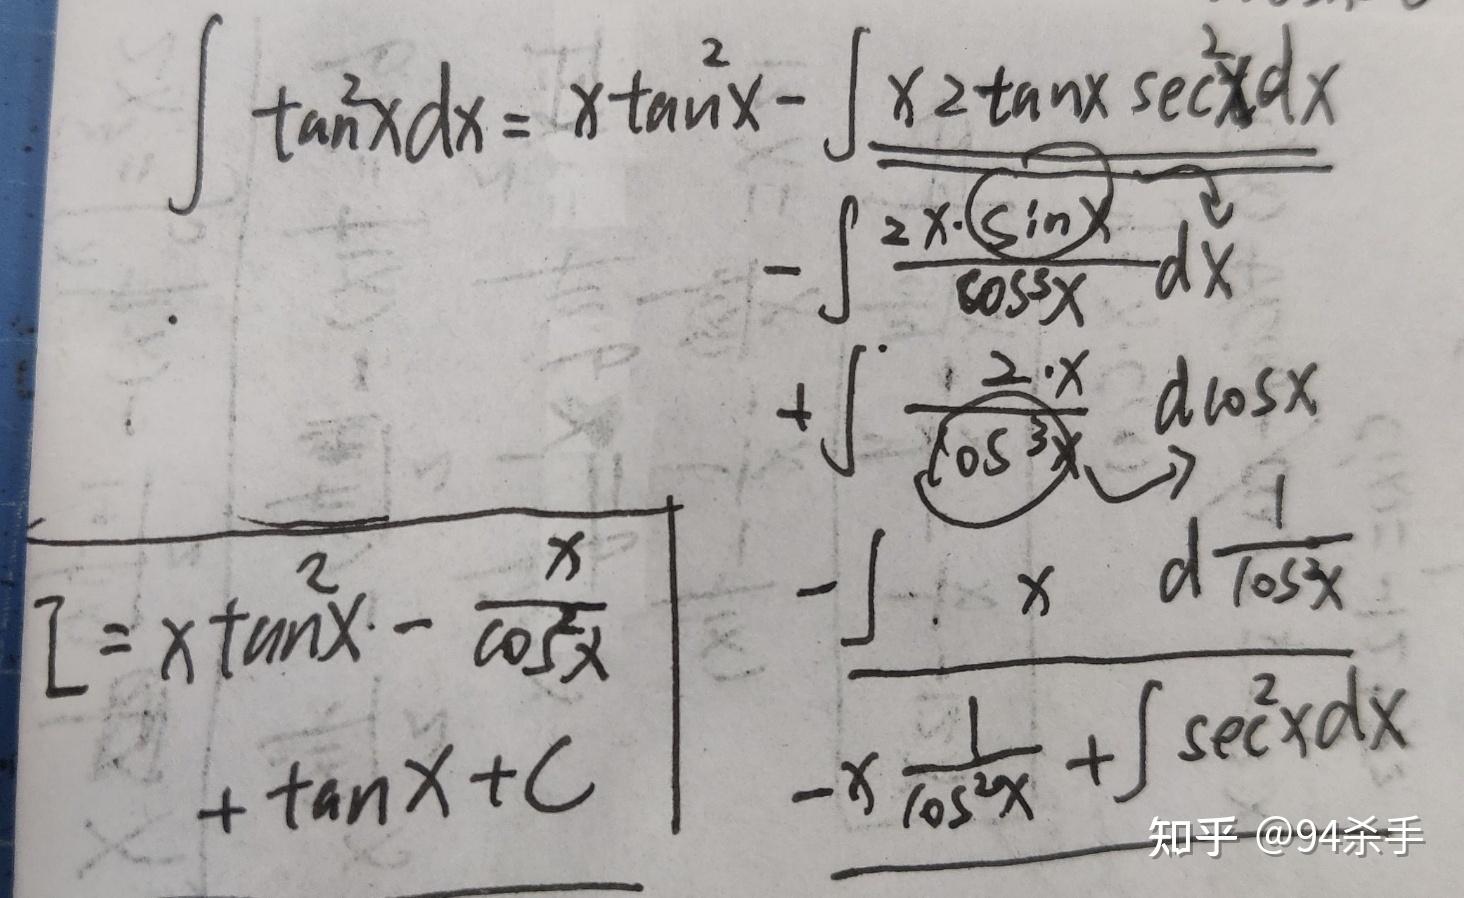 ∫ tan²x dx = x tan²x - ∫ x 2 tanx sec²x dx
- ∫ 2x·sinx / cos³x dx
+ ∫ 2·x / cos³x dcosx
- ∫ x d 1/cos²x
- x 1/cos²x + ∫ sec²x dx
I = x tan²x - x/cos²x
+ tanx + C
知乎 @94杀手